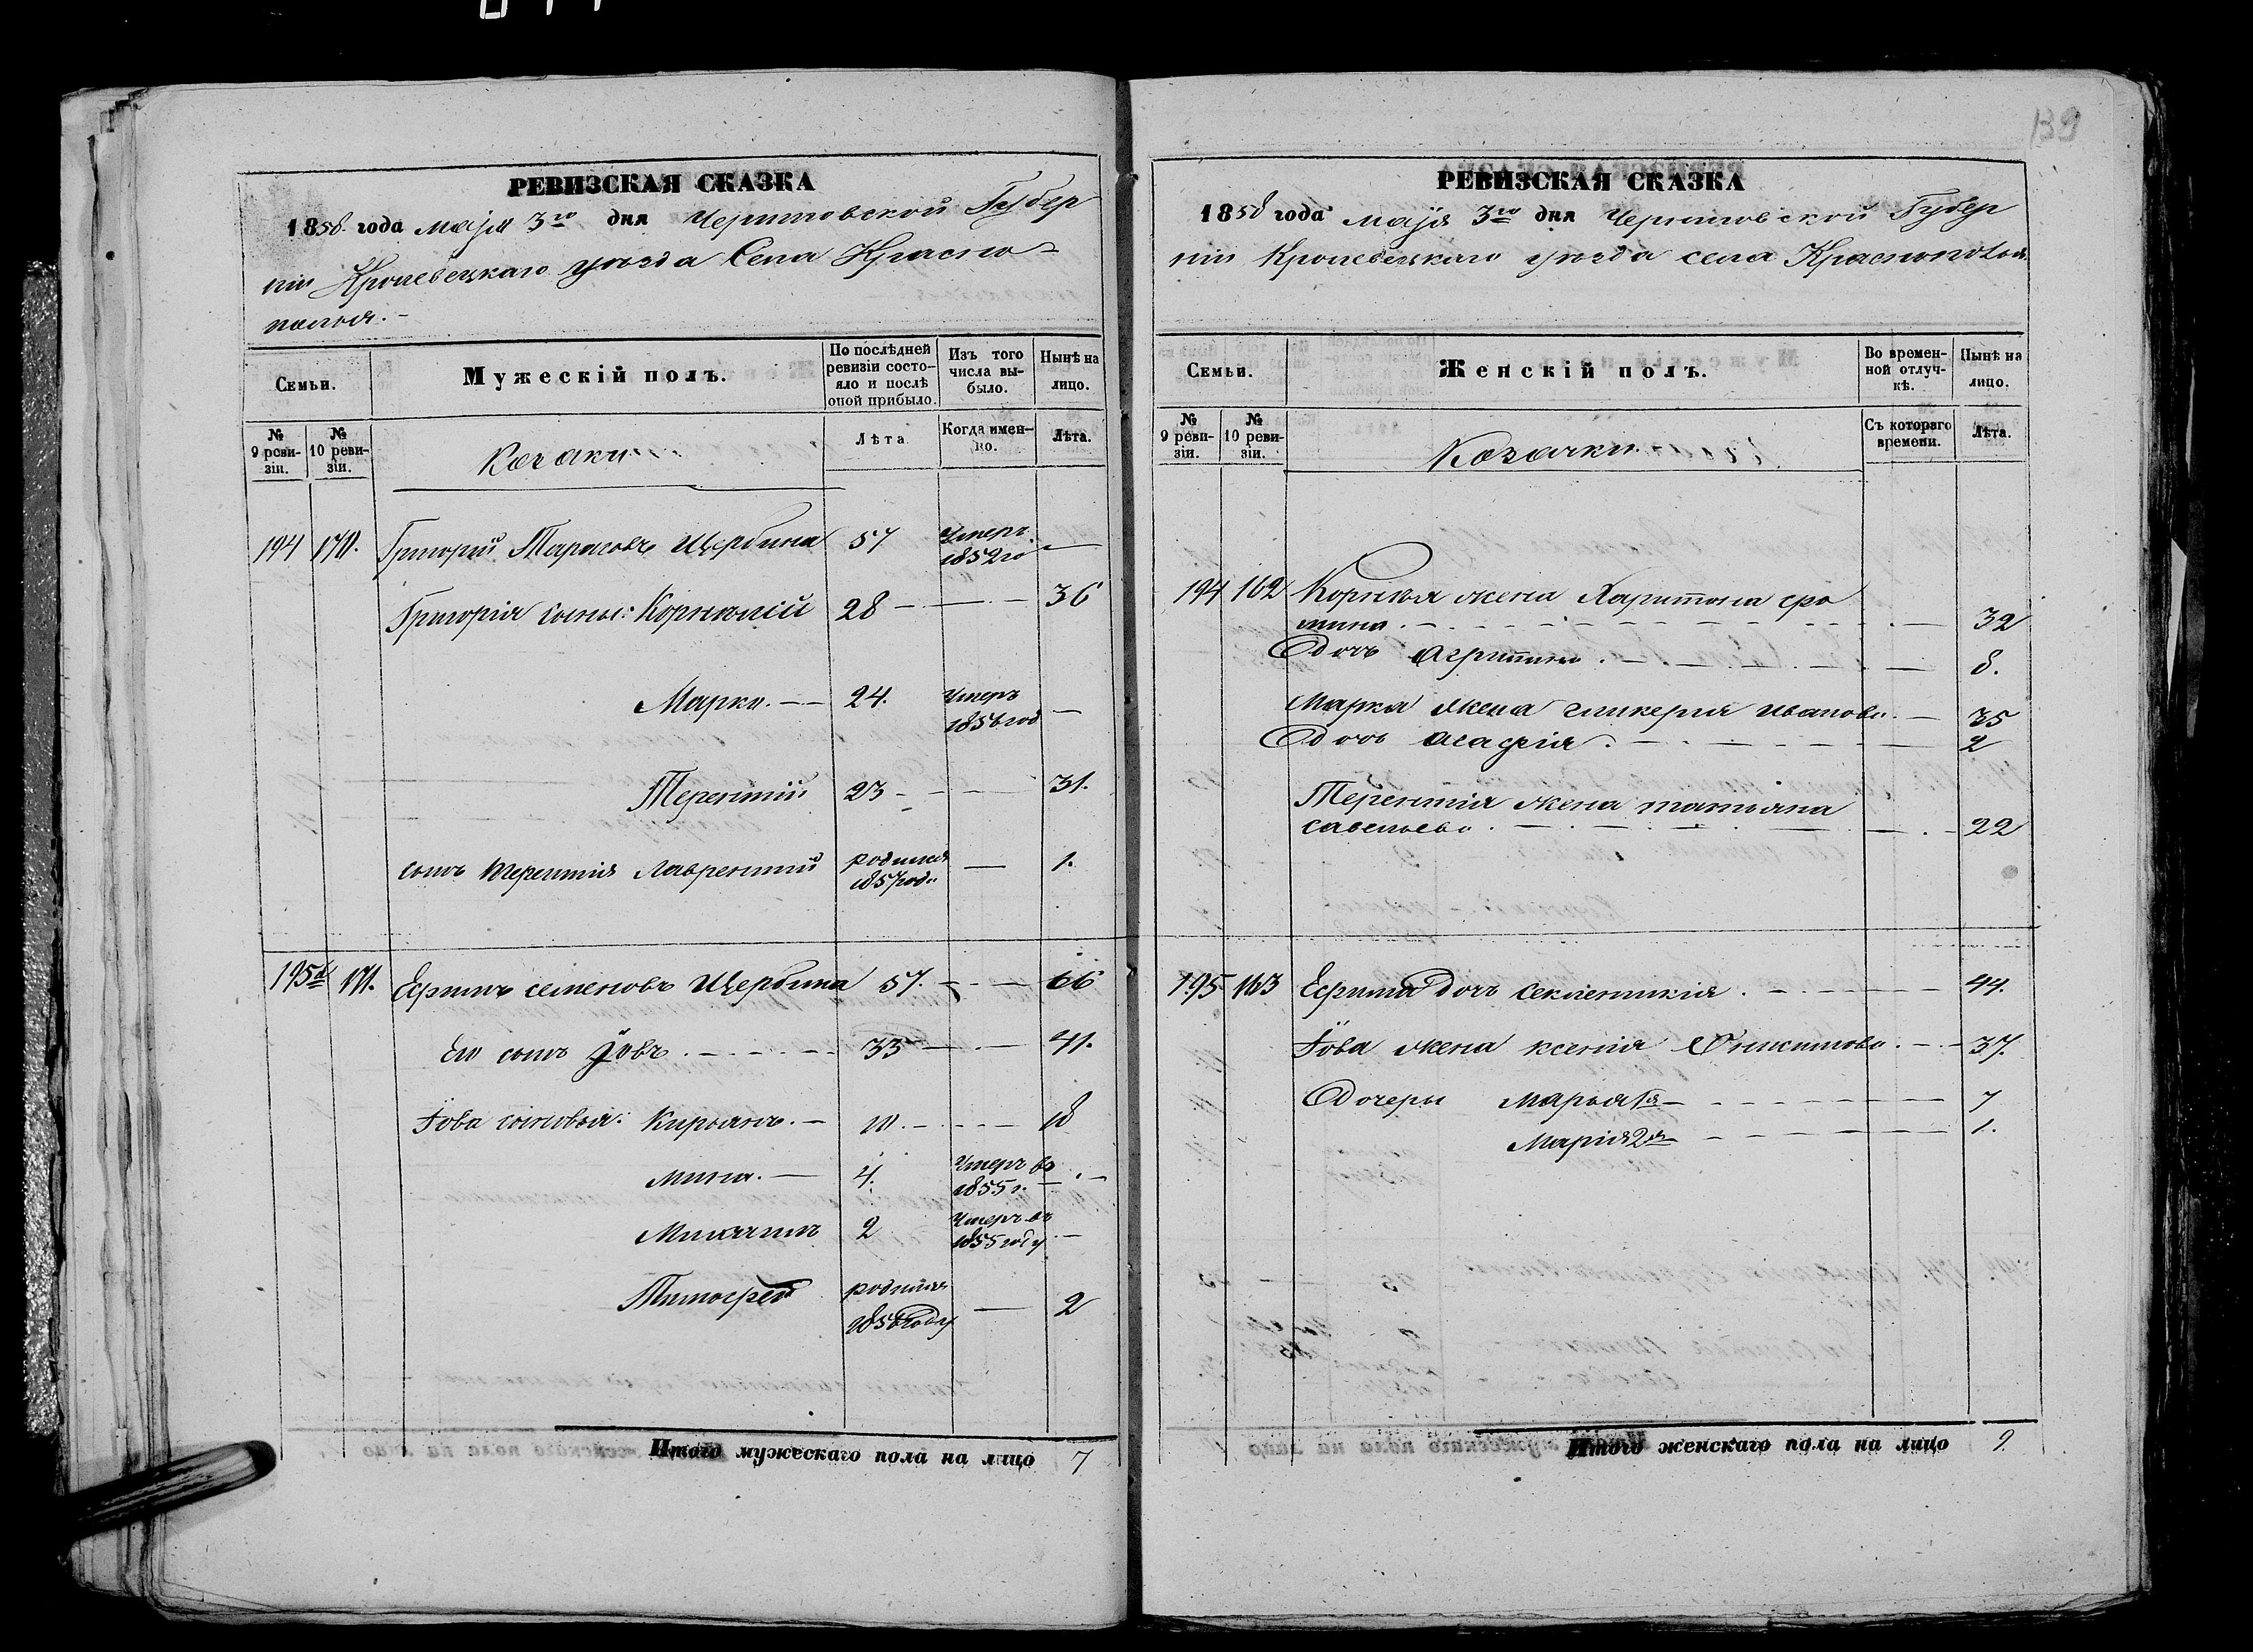 139
РЕВИЗСКАЯ СКАЗКА
1858 года маія 3го дня Черниговской Губер
ніи Кролевецкаго уѣзда Села Красно-
полья.
Семьи.
Мужескій полъ.
По послѣдней ревизіи состояло и послѣ оной прибыло.
Изъ того числа выбыло.
Нынѣ на лицо.
№ 9 ревизіи.
№ 10 ревизіи.
Козаки
Лѣта
Когда именно.
Лѣта.
194 170. Григорій Тарасовъ Щербина 57 Умеръ 1852го —
Григорія сыны: Корнилій 28 — 36
Марко. — 24. Умеръ 1856 год —
Терентій 23 — 31.
сынъ Терентія Лаврентий родился 1857 года — 1.
195й 171. Ефимъ Семеновъ Щербина 57. — 66
Его сынъ Іовъ 33 — 41.
Іова сыновья: Кирьянъ. — 10. — 18
Мина. — 4. Умеръ въ 1855 г. —
Никитъ 2 Умеръ въ 1855 году —
Тимофей родился 1856 году — 2
Итого мужескаго пола на лицо 7
РЕВИЗСКАЯ СКАЗКА
1858 года маія 3го дня Черниговской Губер
ніи Кролевецкаго уѣзда села Краснополья
Семьи.
Женскій полъ.
Во временной отлучкѣ.
Нынѣ на лицо.
№ 9 ревизіи.
№ 10 ревизіи.
Козачки.
Съ котораго времени.
Лѣта.
194 162 Корнѣя жена Харитона
32
Дочь Агрипина 8.
Марка жена гликерія иванова. — 35
Дочь Агафія 2
Терентія жена татьяна
савельева 22
195 163 Ефима Дочь Секлетикія 44.
Іова жена ксенія Никитова. — 37.
Дочеры Марья 1я — 7
Марія 2я — 1.
Итого женскаго пола на лицо 9.